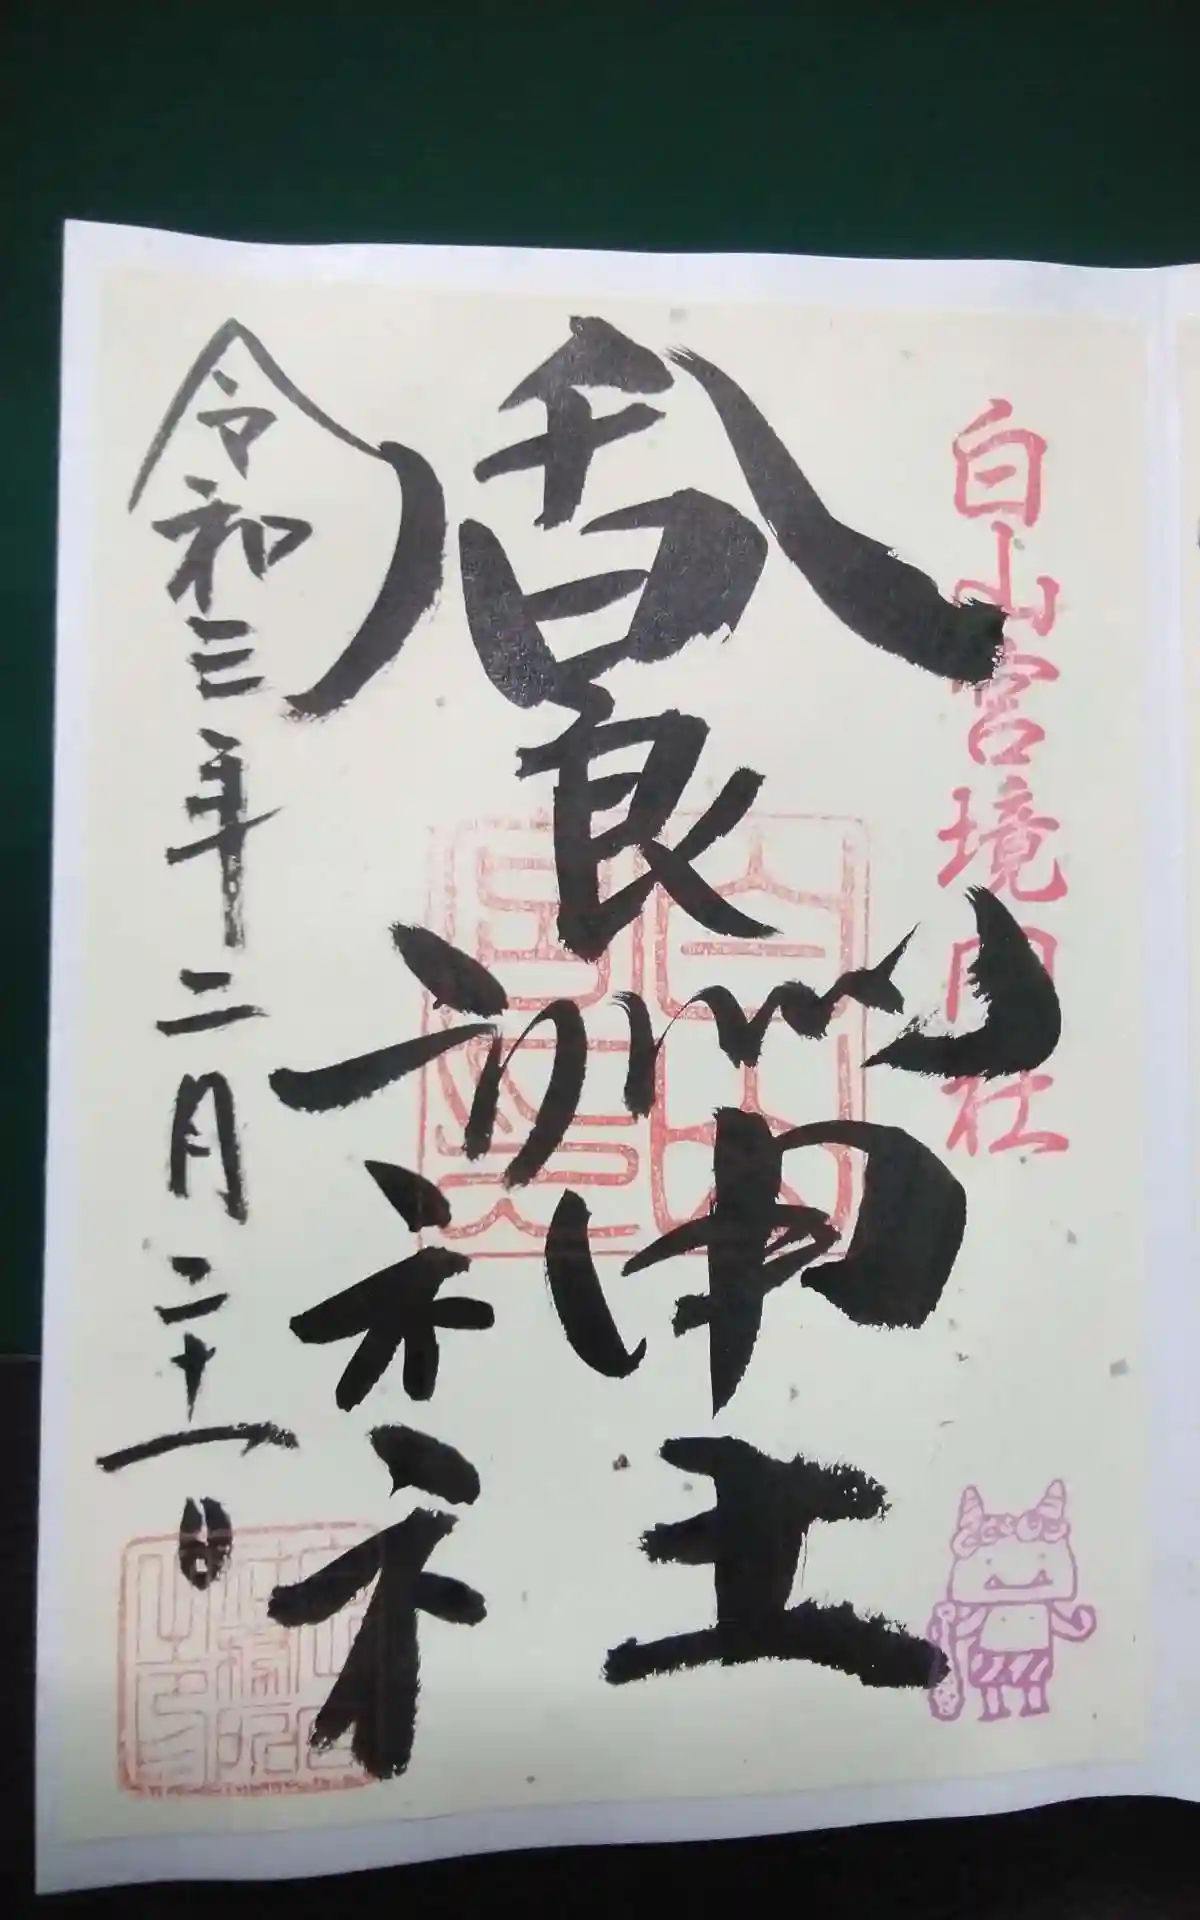 白山宮境内社
香良洲神社
令和三年二月二十一日